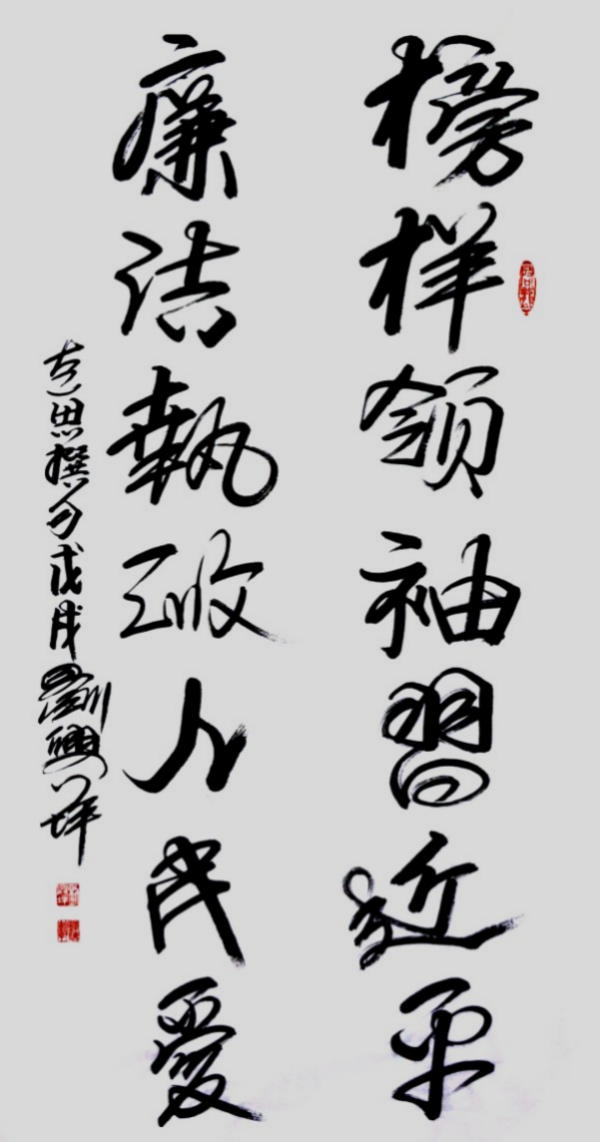 榜样领袖習近平
廉洁執政人民愛
思撰句戊戌劉興